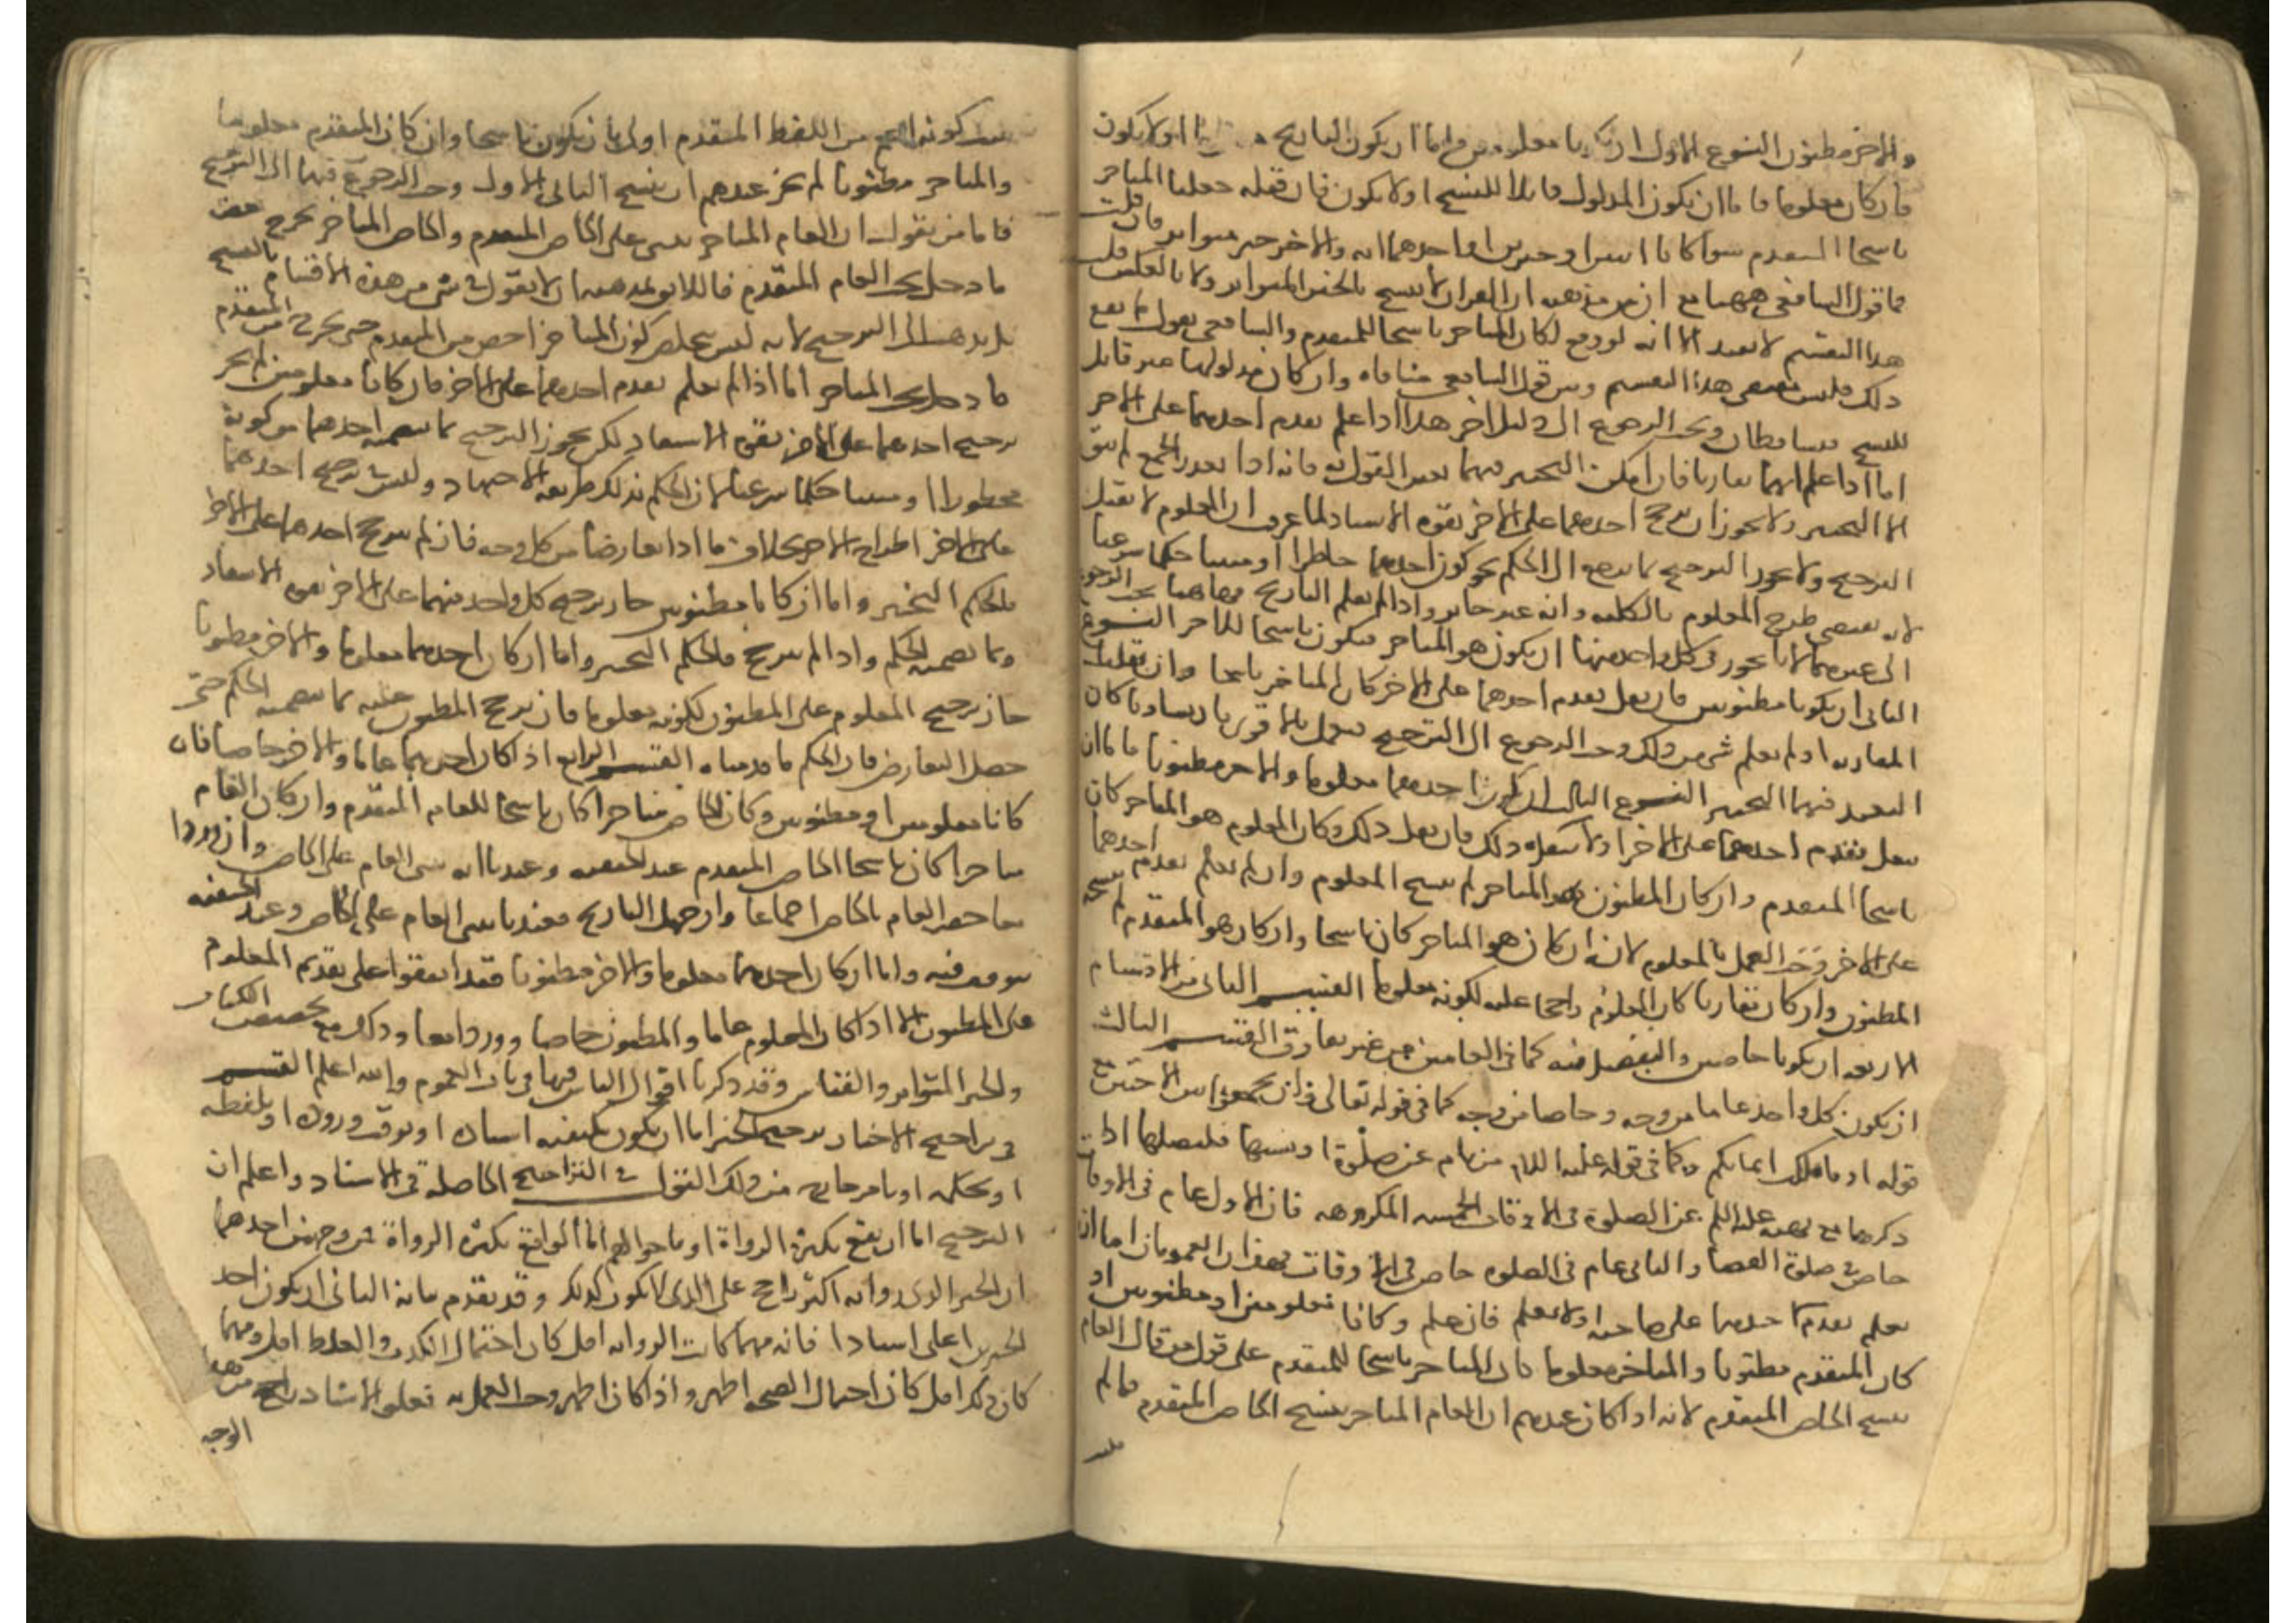 والاخر مظنون النوع الاول ان يكونا معلومين فاما ان يكون التاريخ معلوما او لا يكون
فان كان معلوما فاما ان يكون المدلول قابلا للنسخ او لا يكون فان قبله جعلنا المتاخر
ناسخا للمتقدم سوا كانا ايتين او خبرين او احدهما اية والاخر خبر متواتر فان قلت
فما قول الشافعي ههنا مع ان من مذهبه ان القران لا ينسخ بالخبر المتواتر ولا بالعكس قلت
هذا التقسيم لا يفيد الا انه لو وقع لكان المتاخر ناسخا للمتقدم والشافعي يقول لم يقع
ذلك فليس بمقتضى هذا التقسيم وبين قول الشافعي منافاه وان كان مدلولهما غير قابل
للنسخ تساقطا ويجب الرجوع الى دليل اخر هذا اذا علم تقدم احدهما على الاخر
اما اذا علم انهما تقارنا فان امكن التخيير فيهما تعين القول به فانه اذا تعذر الجمع لم يبق
الا التخيير ولا يجوز ان يرجح احدهما على الاخر بقوة الاسناد لما عرف ان المعلوم لا يقبل
الترجيح ولا يجوز الترجيح بما يرجع الى الحكم نحو كون احدهما حاظرا او مثبتا حكما شرعيا
لانه يقتضي طرح المعلوم بالكلية وانه غير جايز واذا لم يعلم التاريخ فهاهنا يجب الرجوع
الى غيرهما لانا نجوز في كل واحد منهما ان يكون هو المتاخر فيكون ناسخا للاخر النوع
الثاني ان يكونا مظنونين فان نقل تقدم احدهما على الاخر كان المتاخر ناسخا وان نقلت
المقارنة او لم يعلم شي من ذلك وجب الرجوع الى الترجيح فيعمل بالاقوى فان تساويا كان
التعبد فيهما التخيير النوع الثالث ان يكون احدهما معلوما والاخر مظنونا فاما ان
ينقل تقدم احدهما على الاخر او لا ينقل ذلك فان نقل ذلك وكان المعلوم هو المتاخر كان
ناسخا للمتقدم وان كان المظنون هو المتاخر لم ينسخ المعلوم وان لم يعلم تقدم احدهما
على الاخر وجب العمل بالمعلوم لانه ان كان هو المتاخر كان ناسخا وان كان هو المتقدم لم ينسخه
المظنون وان كان تقارنا كان المعلوم راجحا عليه لكونه معلوما القسم الثاني من الاقسام
الاربعة ان يكونا خاصين والتفصيل فيه كما في العامين من غير تفاوت القسم الثالث
ان يكون كل واحد عاما من وجه وخاصا من وجه كما في قوله تعالى وان تجمعوا بين الاختين مع
قوله او ما ملكت ايمانكم وكما في قوله عليه السلام من نام عن صلوة او نسيها فليصلها اذا
ذكرها مع نهيه عليه السلم عن الصلوة في الاوقات الخمسه المكروهه فان الاول عام في الاوقات
خاص في صلوة القضا والثاني عام في الصلوة خاص في الاوقات فهذان العمومان اما ان
يعلم تقدم احدهما على صاحبه او لا يعلم فان علم وكانا معلومين او مظنونين او
كان المتقدم مظنونا والمتاخر معلوما كان المتاخر ناسخا للمتقدم على قول من قال العام
ينسخ الخاص المتقدم لانه اذا كان عندهم ان العام المتاخر ينسخ الخاص المتقدم فما لم
يثبت كونه اعم من اللفظ المتقدم اولى بان يكون ناسخا وان كان المتقدم معلوما
والمتاخر مظنونا لم يجز عندهم ان ينسخ الثاني الاول وجب الرجوع فيهما الى الترجيح
فاما من يقول ان العام المتاخر يبنى على الخاص المتقدم والخاص المتاخر يخرج بعض
ما دخل تحت العام المتقدم فاللايق بمذهبه ان لا يقول في شي من هذه الاقسام بالنسخ
بل يذهب الى الترجيح لانه ليس يتخلص كون المتاخر اخص من المتقدم حتى يخرج من المتقدم
ما دخل تحت المتاخر اما اذا لم يعلم تقدم احدهما على الاخر فان كانا معلومين لم يجز
ترجيح احدهما على الاخر بقوة الاسناد لكن يجوز الترجيح بما يتضمنه احدهما من كونه
محظورا او مثبتا حكما شرعيا لان الحكم بذلك طريقه الاجتهاد وليس في ترجيح احدهما
على الاخر اطراح الاخر بخلاف ما اذا تعارضا من كل وجه فان لم يترجح احدهما على الاخر
فالحكم التخيير واما ان كانا مظنونين جاز ترجيح كل واحد منهما على الاخر بقوة الاسناد
وبما تضمنه الحكم واذا لم يترجح فالحكم التخيير واما ان كان احدهما معلوما والاخر مظنونا
جاز ترجيح المعلوم على المظنون لكونه معلوما فان ترجح المظنون عليه بما يتضمنه الحكم حتى
حصل التعارض فالحكم ما قدمناه القسم الرابع اذا كان احدهما عاما والاخر خاصا فان
كانا معلومين او مظنونين وكان الخاص متاخرا كان ناسخا للعام المتقدم وان كان العام
متاخرا كان ناسخا للخاص المتقدم عند الحنفية وعندنا انه يبنى العام على الخاص وان وردا
معا خص العام بالخاص اجماعا وان جهل التاريخ فعندنا يبنى العام على الخاص وعند الحنفيه
يتوقف فيه واما ان كان احدهما معلوما والاخر مظنونا فقد اتفقوا على تقديم المعلوم
على المظنون الا اذا كان المعلوم عاما والمظنون خاصا ووردا معا وذلك مع تخصيص الكتاب
والخبر المتواتر والقياس وقد ذكرنا اقوال الناس فيها في باب العموم والله اعلم القسم
في تراجيح الاخبار ترجيح الخبر اما ان يكون بكيفية اسناده او بوقت وروده او بلفظه
او بحكمه او بامر خارج من ذلك القول في التراجيح الحاصلة في الاسناد واعلم ان
الترجيح اما ان يقع بكثرة الرواة او باحوالهم اما الواقع بكثرة الرواة فمن وجهين احدهما
ان الخبر الذي رواته اكثر راجح على الذي لا يكون كذلك وقد تقدم بيانه الثاني ان يكون احد
الخبرين اعلى اسنادا فانه مهما كانت الرواه اقل كان احتمال الكذب والغلط اقل ومهما
كان ذلك اقل كان احتمال الصحة اظهر واذا كان اظهر وجب العمل به فعلو الاسناد راجح من هذا
الوجه